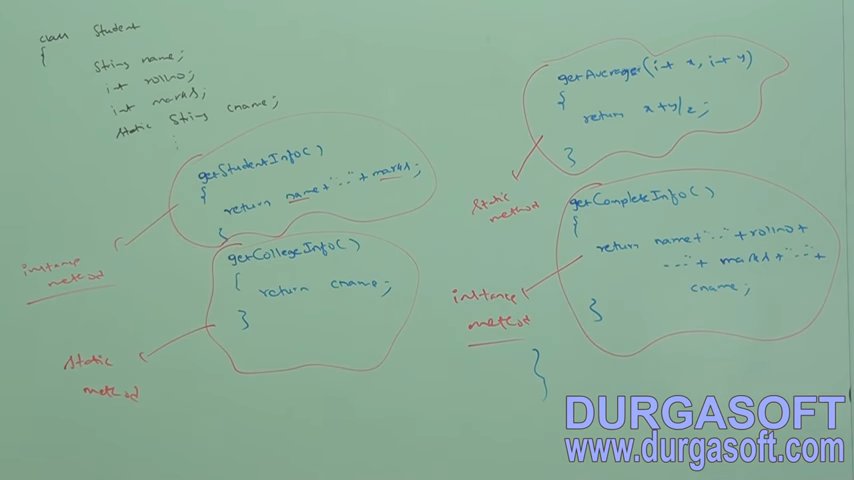 class Student
{
String name;
int rollno;
int marks;
static String cname;
:
getStudentInfo()
{
return name+"..."+marks;
}
instance
method
getCollegeInfo()
{
return cname;
}
static
method
getAverage(int x, int y)
{
return x+y/2;
}
static
method
getCompleteInfo()
{
return name+"..."+rollno+
"..."+marks+"..."+
cname;
}
instance
method
}
DURGASOFT
www.durgasoft.com